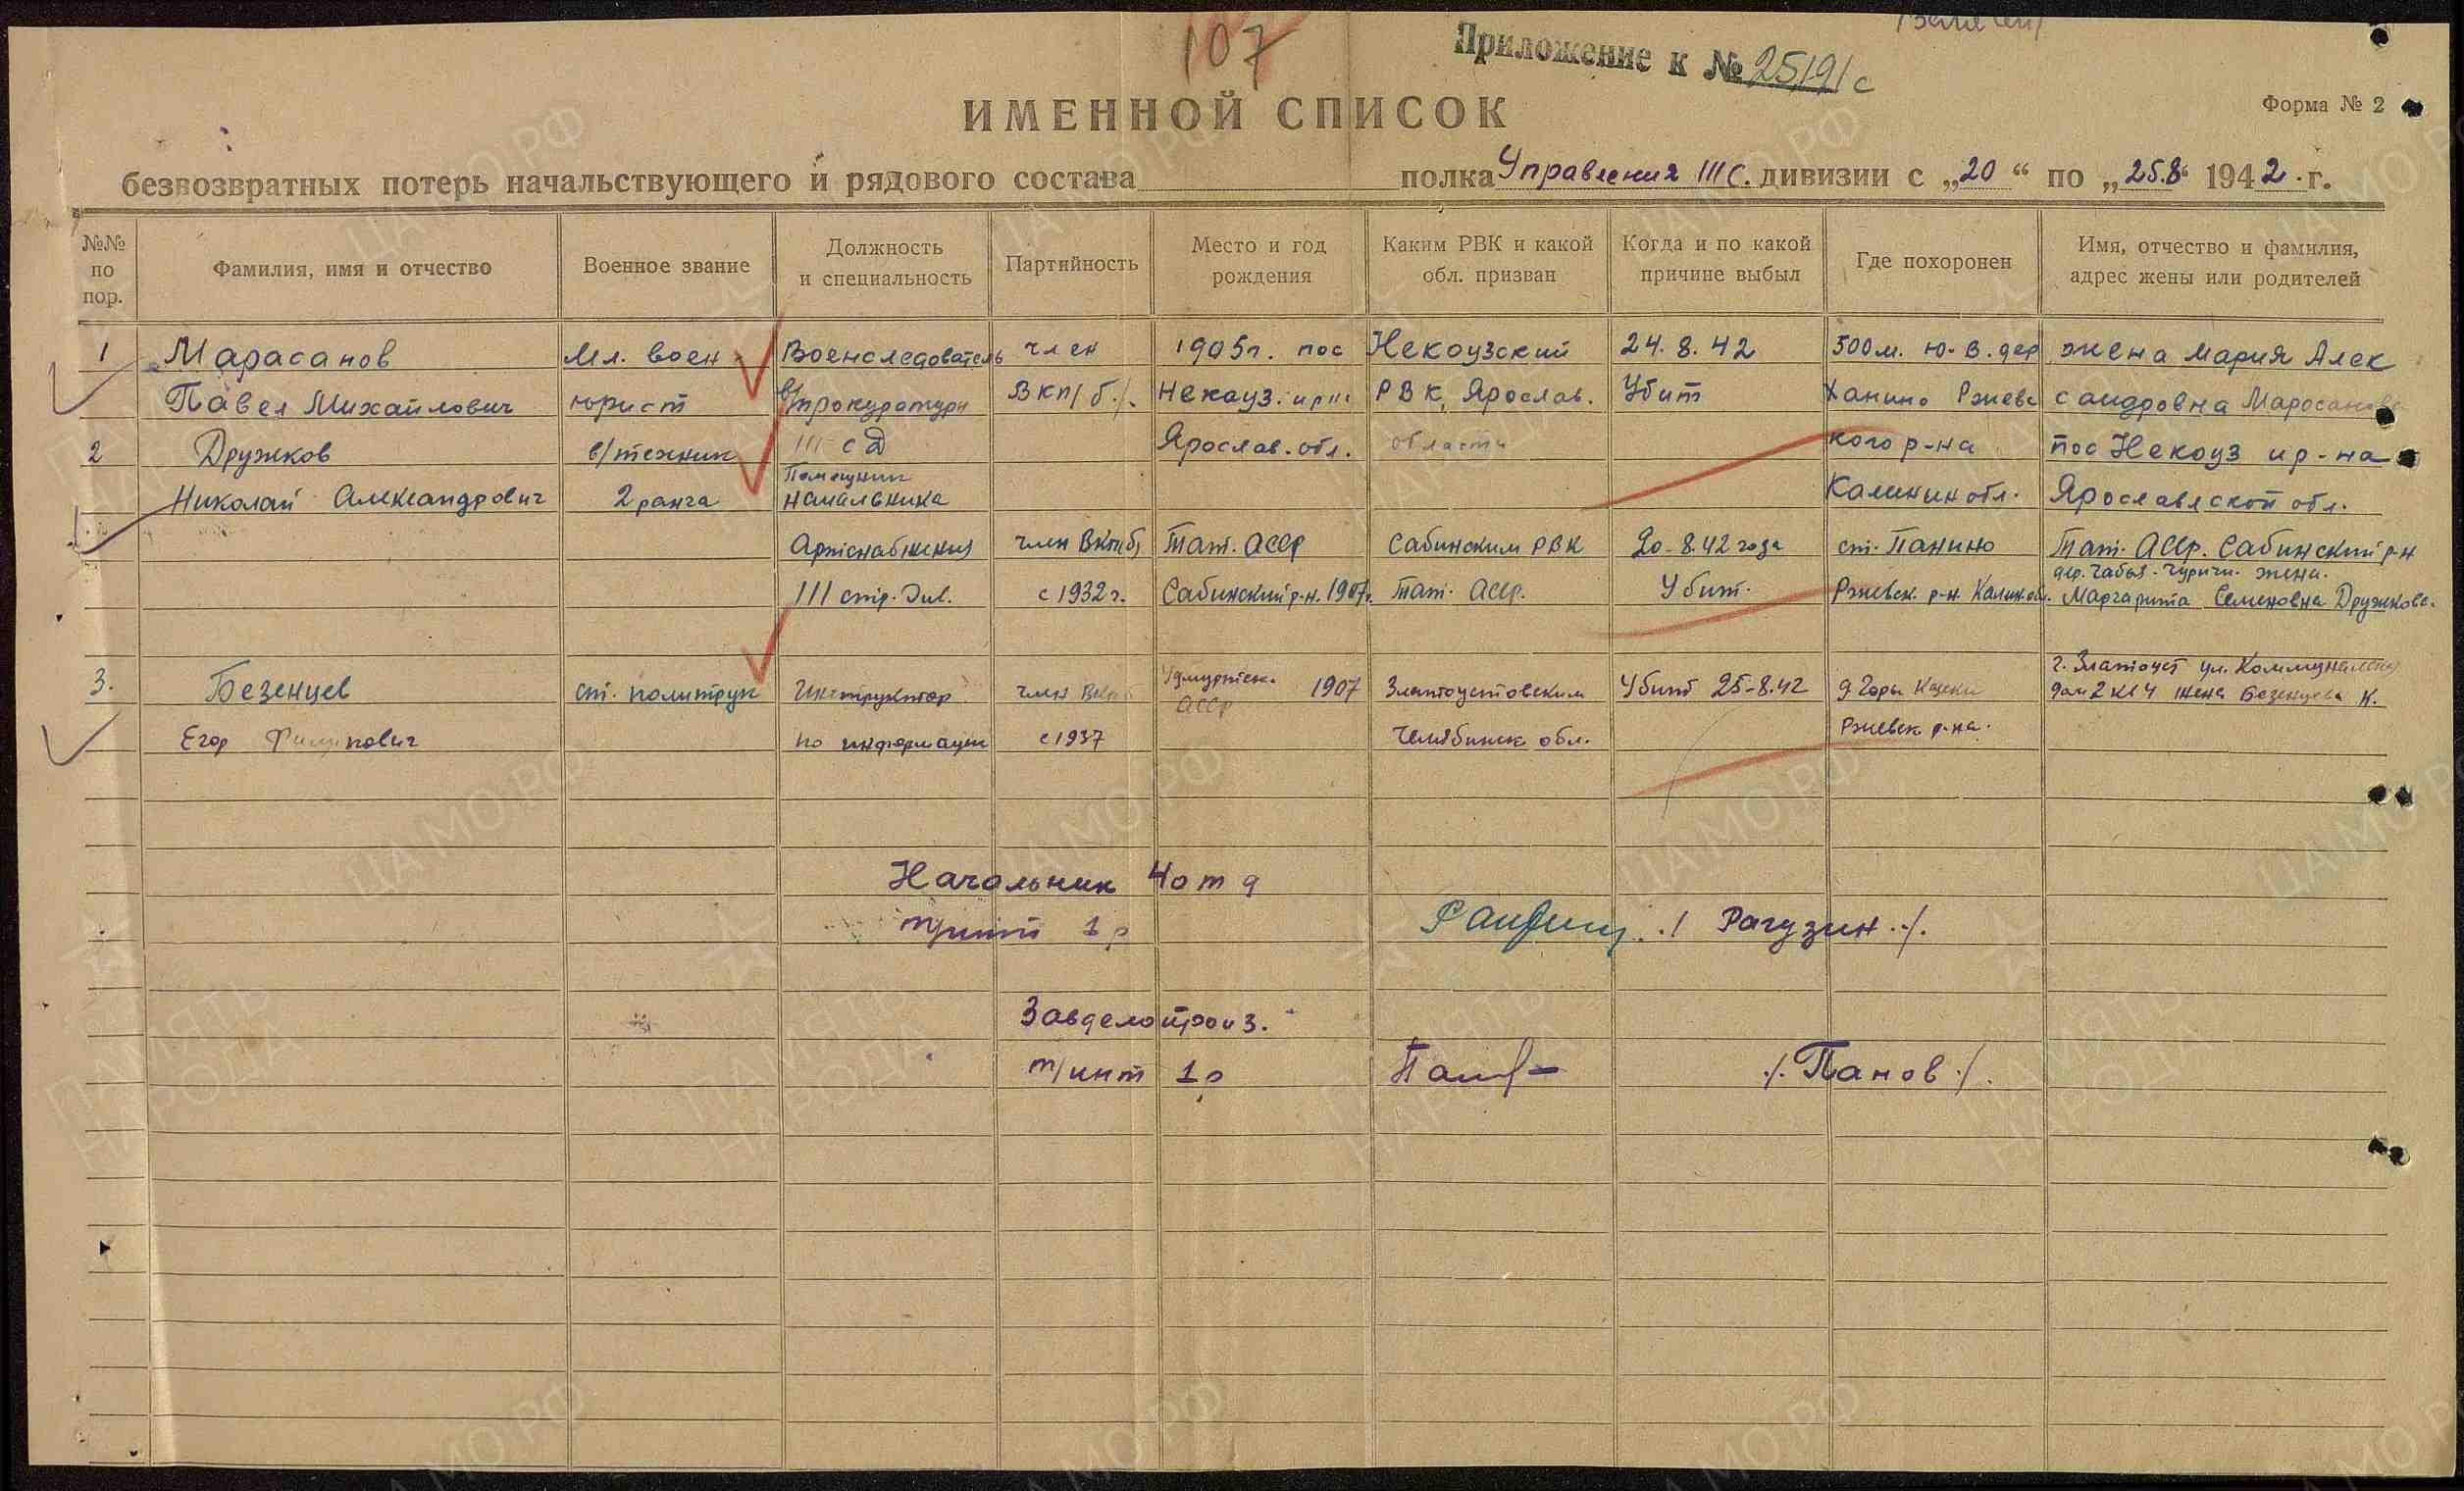 107
Приложение к № 25191с
ИМЕННОЙ СПИСОК
Форма № 2
безвозвратных потерь начальствующего и рядового состава полка Управления 111 с. дивизии с „20“ по „25.8“ 1942 г.
№№ по пор.
Фамилия, имя и отчество
Военное звание
Должность и специальность
Партийность
Место и год рождения
Каким РВК и какой обл. призван
Когда и по какой причине выбыл
Где похоронен
Имя, отчество и фамилия, адрес жены или родителей
1 Марасанов Мл. воен Военследователь член 1905г. пос Некоузский 24.8.42 500м. Ю-В. дер жена Мария Алек
Павел Михайлович юрист в/прокуратуры ВКП/б/. Некауз. РВК, Ярослав. Убит Ханино Ржевс сандровна Маросанова
2 Дружков в/техник 111 сд Ярослав. обл. области кого р-на пос Некоуз и р-на
Помощник
Николай Александрович 2 ранга начальника Калинин обл. Ярославской обл.
Артснабжения член ВКП(б) Тат. АССР Сабинским РВК 20-8.42 года ст. Панино Тат. АССР. Сабинский р-н
дер. Чабья-Чурчи. жена.
111 стр. Див. с 1932 г. Сабинский р-н. 1907г. Тат. АССР. Убит. Ржевск. р-н. Калин.обл. Маргарита Семеновна Дружкова.
г. Златоуст ул. Коммунальная
3. Безенцев ст. политрук Инструктор член Удмуртск. АССР 1907 Златоустовским Убит 25-8.42 д Горы Казеки дом 2 кв 4 жена Безенцева К.
Егор по информации с 1937 Челябинск обл. Ржевск р-на.
Начальник 4 отд
1 р ./ Рагузин ./.
Завделопроиз.
т/инт 1 р ./. Панов ./.
ПАМЯТЬ НАРОДА
ЦА МО РФ